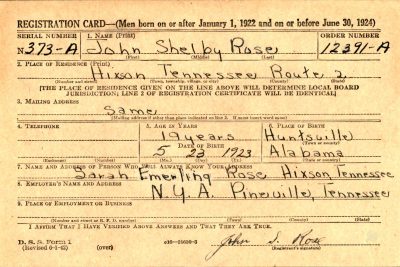 REGISTRATION CARD—(Men born on or after January 1, 1922 and on or before June 30, 1924)
SERIAL NUMBER 1. NAME (Print) ORDER NUMBER
N 373-A John Shelby Rose 12391-A
(First) (Middle) (Last)
2. PLACE OF RESIDENCE (Print)
Hixson Tennessee Route 2
(Number and street) (Town, township, village, or city) (County) (State)
[THE PLACE OF RESIDENCE GIVEN ON THE LINE ABOVE WILL DETERMINE LOCAL BOARD
JURISDICTION; LINE 2 OF REGISTRATION CERTIFICATE WILL BE IDENTICAL]
3. MAILING ADDRESS
Same
[Mailing address if other than place indicated on line 2. If same insert word same]
4. TELEPHONE 5. AGE IN YEARS 6. PLACE OF BIRTH
19 years Huntsville
DATE OF BIRTH (Town or county)
5 23 1923 Alabama
(Exchange) (Number) (Mo.) (Day) (Yr.) (State or country)
7. NAME AND ADDRESS OF PERSON WHO WILL ALWAYS KNOW YOUR ADDRESS
Sarah Emerling Rose Hixson, Tennessee
8. EMPLOYER'S NAME AND ADDRESS
N.Y.A. Pineville, Tennessee
9. PLACE OF EMPLOYMENT OR BUSINESS
(Number and street or R. F. D. number) (Town) (County) (State)
I AFFIRM THAT I HAVE VERIFIED ABOVE ANSWERS AND THAT THEY ARE TRUE.
D. S. S. Form 1
(over)
John S. Rose
(Registrant's signature)